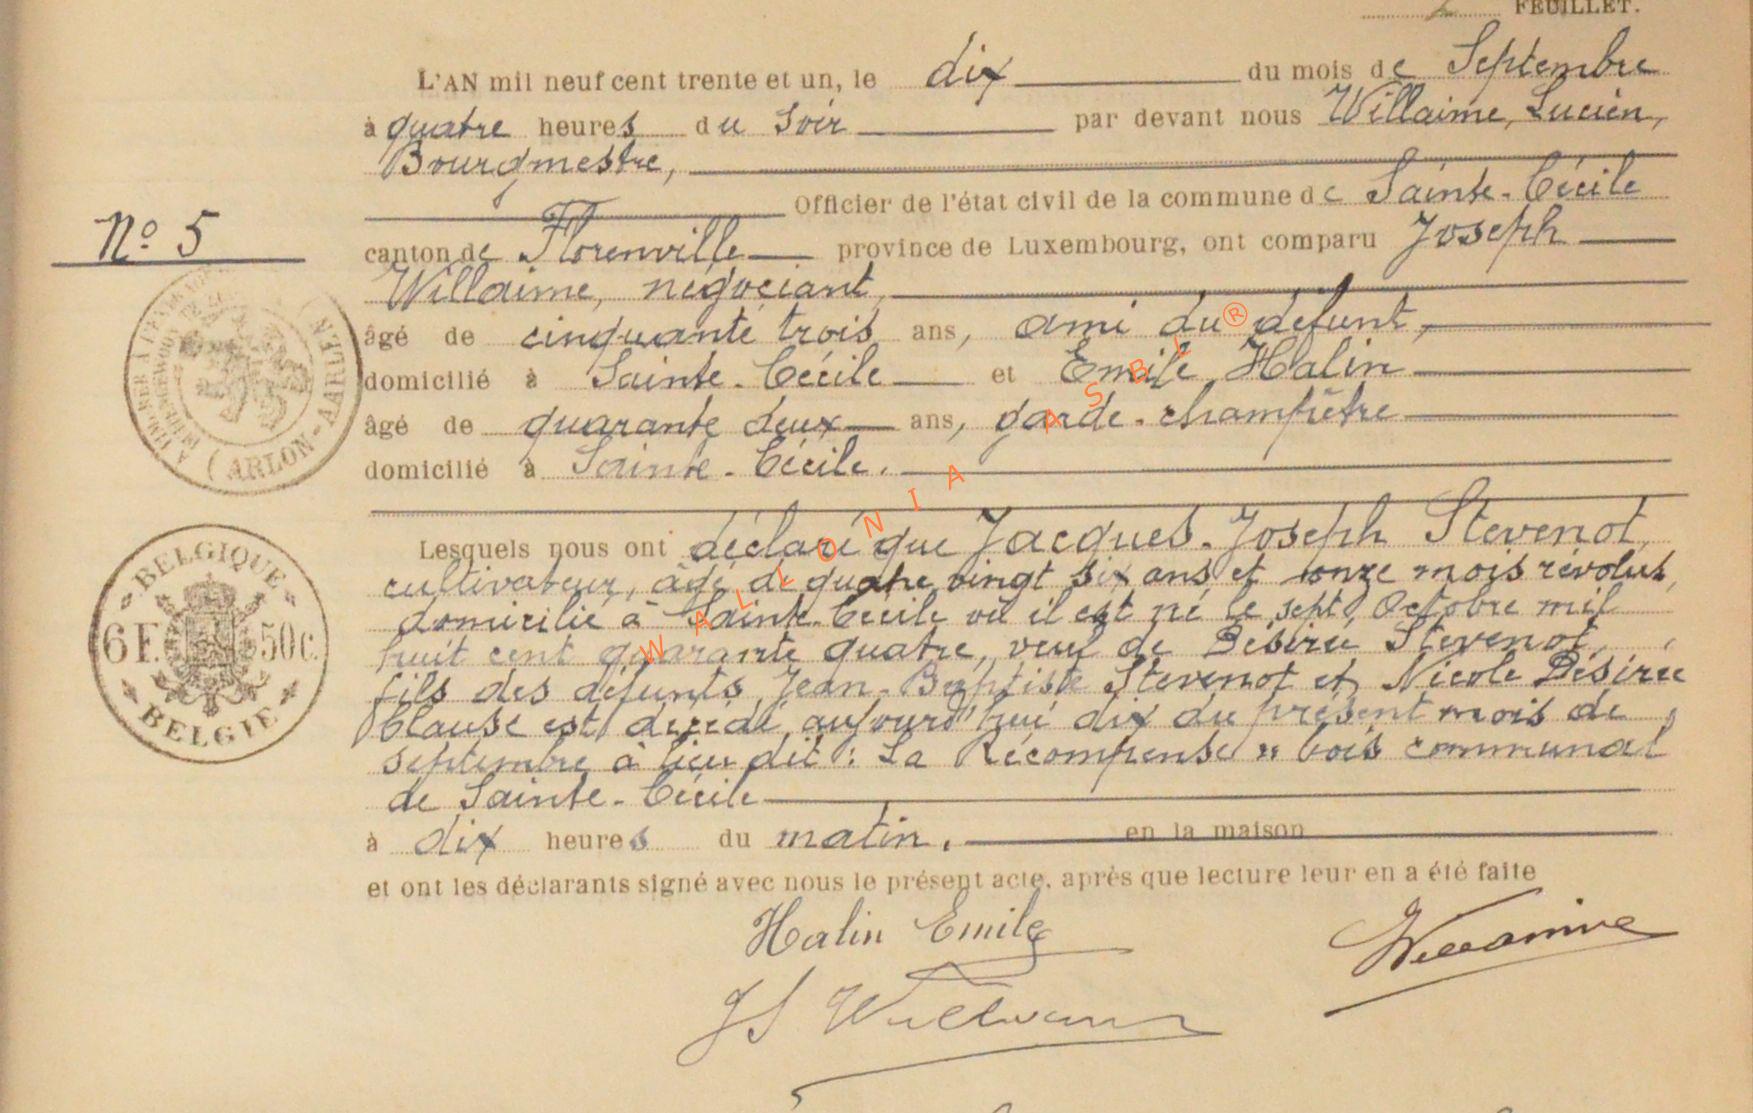 FEUILLET.
L'AN mil neuf cent trente et un, le dix du mois de Septembre
à quatre heures du soir par devant nous Willaime, Lucien,
Bourgmestre,
Officier de l'état civil de la commune de Sainte-Cécile
N° 5
canton de Florenville province de Luxembourg, ont comparu Joseph
Willaime, négociant,
âgé de cinquante trois ans, ami du défunt,
domicilié à Sainte-Cécile et Emile Halin
âgé de quarante deux ans, garde-champêtre
domicilié à Sainte-Cécile.
ARLON-AARLEN
Lesquels nous ont déclaré que Jacques-Joseph Stevenot,
cultivateur, âgé de quatre vingt six ans et onze mois révolus,
domicilié à Sainte-Cécile où il est né le sept Octobre mil
huit cent quarante quatre, veuf de Désirée Stevenot,
fils des défunts Jean-Baptiste Stevenot et Nicole Désirée
Clause est décédé aujourd'hui dix du présent mois de
septembre à lieu dit : La Récompense » bois communal
de Sainte-Cécile
BELGIQUE
6F. 50c.
BELGIE
à dix heures du matin. en la maison
et ont les déclarants signé avec nous le présent acte, après que lecture leur en a été faite
Halin Emile
Willaime
JS Willaime
WALLONIA ASBL ®